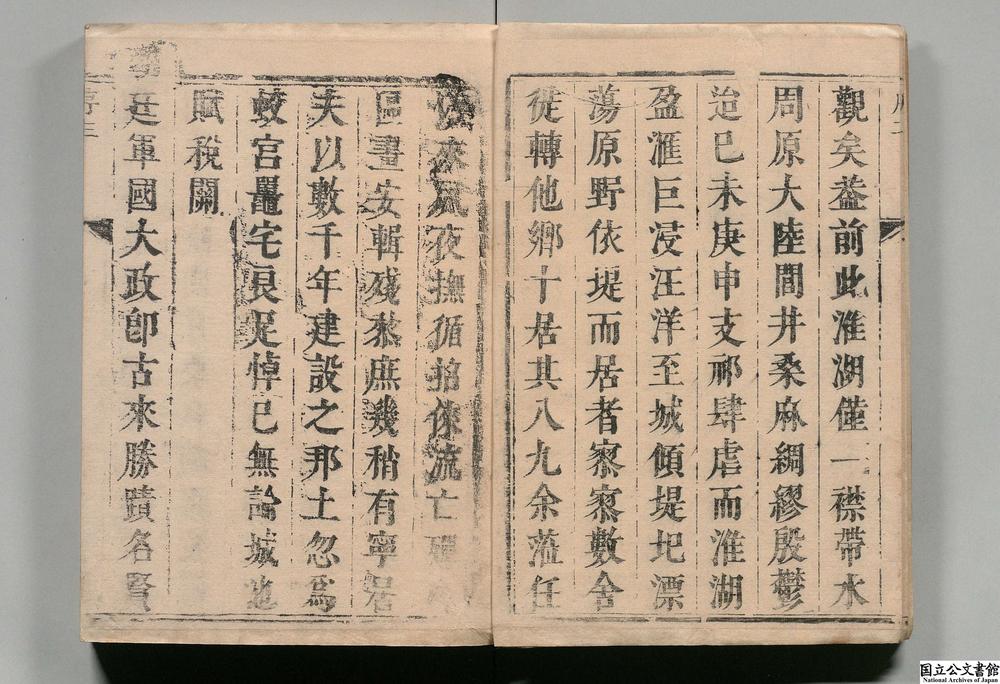 觀矣葢前此淮湖僅一襟帶水
周原大陸間井桑麻綢繆殷鬱
迨已未庚申支祁肆虐而淮湖
盈滙巨浸汪洋至城傾堤圯漂
蕩原野依堤而居者寥寥數舍
徙轉他鄉十居其八九余蒞任
以來夙夜撫循招徠流亡
區畫安輯殘黎庶幾稍有寧居
夫以數千年建設之邦土忽為
蛟宮鼉宅良足悼已無論城池
賦稅關
廷軍國大政卽古來勝蹟名賢
序三
国立公文書館
National Archives of Japan